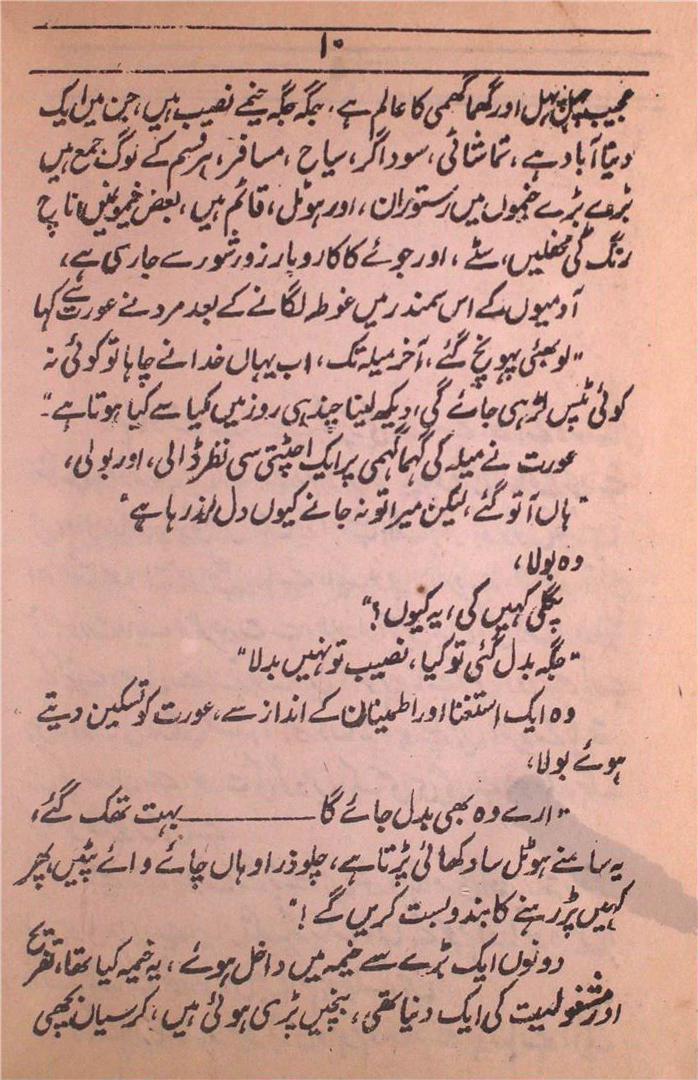 ۱۰
عجیب چہل پہل اور گھما گھمی کا عالم ہے، جگہ جگہ خیمے نصیب ہیں، جن میں ایک
دنیا آباد ہے، تماشائی، سوداگر، سیاح، مسافر، ہر قسم کے لوگ جمع ہیں
بڑے بڑے خیموں میں رستوران، اور ہوٹل، قائم ہیں، بعض خیموں میں ناچ
رنگ کی محفلیں، سٹے، اور جوئے کا کاروبار زور شور سے جاری ہے،
آدمیوں کے اس سمندر میں غوطہ لگانے کے بعد مرد نے عورت سے کہا
"لو بھئی پہونچ گئے، آخر میلہ تک، اب یہاں خدا نے چاہا تو کوئی نہ
کوئی ٹپس لڑ ہی جائے گی، دیکھ لینا چند ہی روز میں کیا سے کیا ہوتا ہے"۔
عورت نے میلہ کی گہما گہمی پر ایک اچٹتی سی نظر ڈالی، اور بولی،
"ہاں آ تو گئے، لیکن میرا تو نہ جانے کیوں دل لذر رہا ہے"
وہ بولا،
پگلی کہیں کی، یہ کیوں؟"
"جگہ بدل گئی تو کیا، نصیب تو نہیں بدلا"
وہ ایک استغنا اور اطمینان کے انداز سے، عورت کو تسکین دیتے
ہوئے بولا،
"ارے وہ بھی بدل جائے گا ــــــــــــ بہت تھک گئے،
یہ سامنے ہوٹل سا دکھائی پڑتا ہے، چلو ذرا وہاں چائے وائے پئیں، پھر
کہیں پڑ رہنے کا بندوبست کریں گے!"
دونوں ایک بڑے سے خیمہ میں داخل ہوئے، یہ خیمہ کیا تھا، تفریح
اور مشغولیت کی ایک دنیا تھی، بنچیں پڑی ہوئی ہیں، کرسیاں بچھی